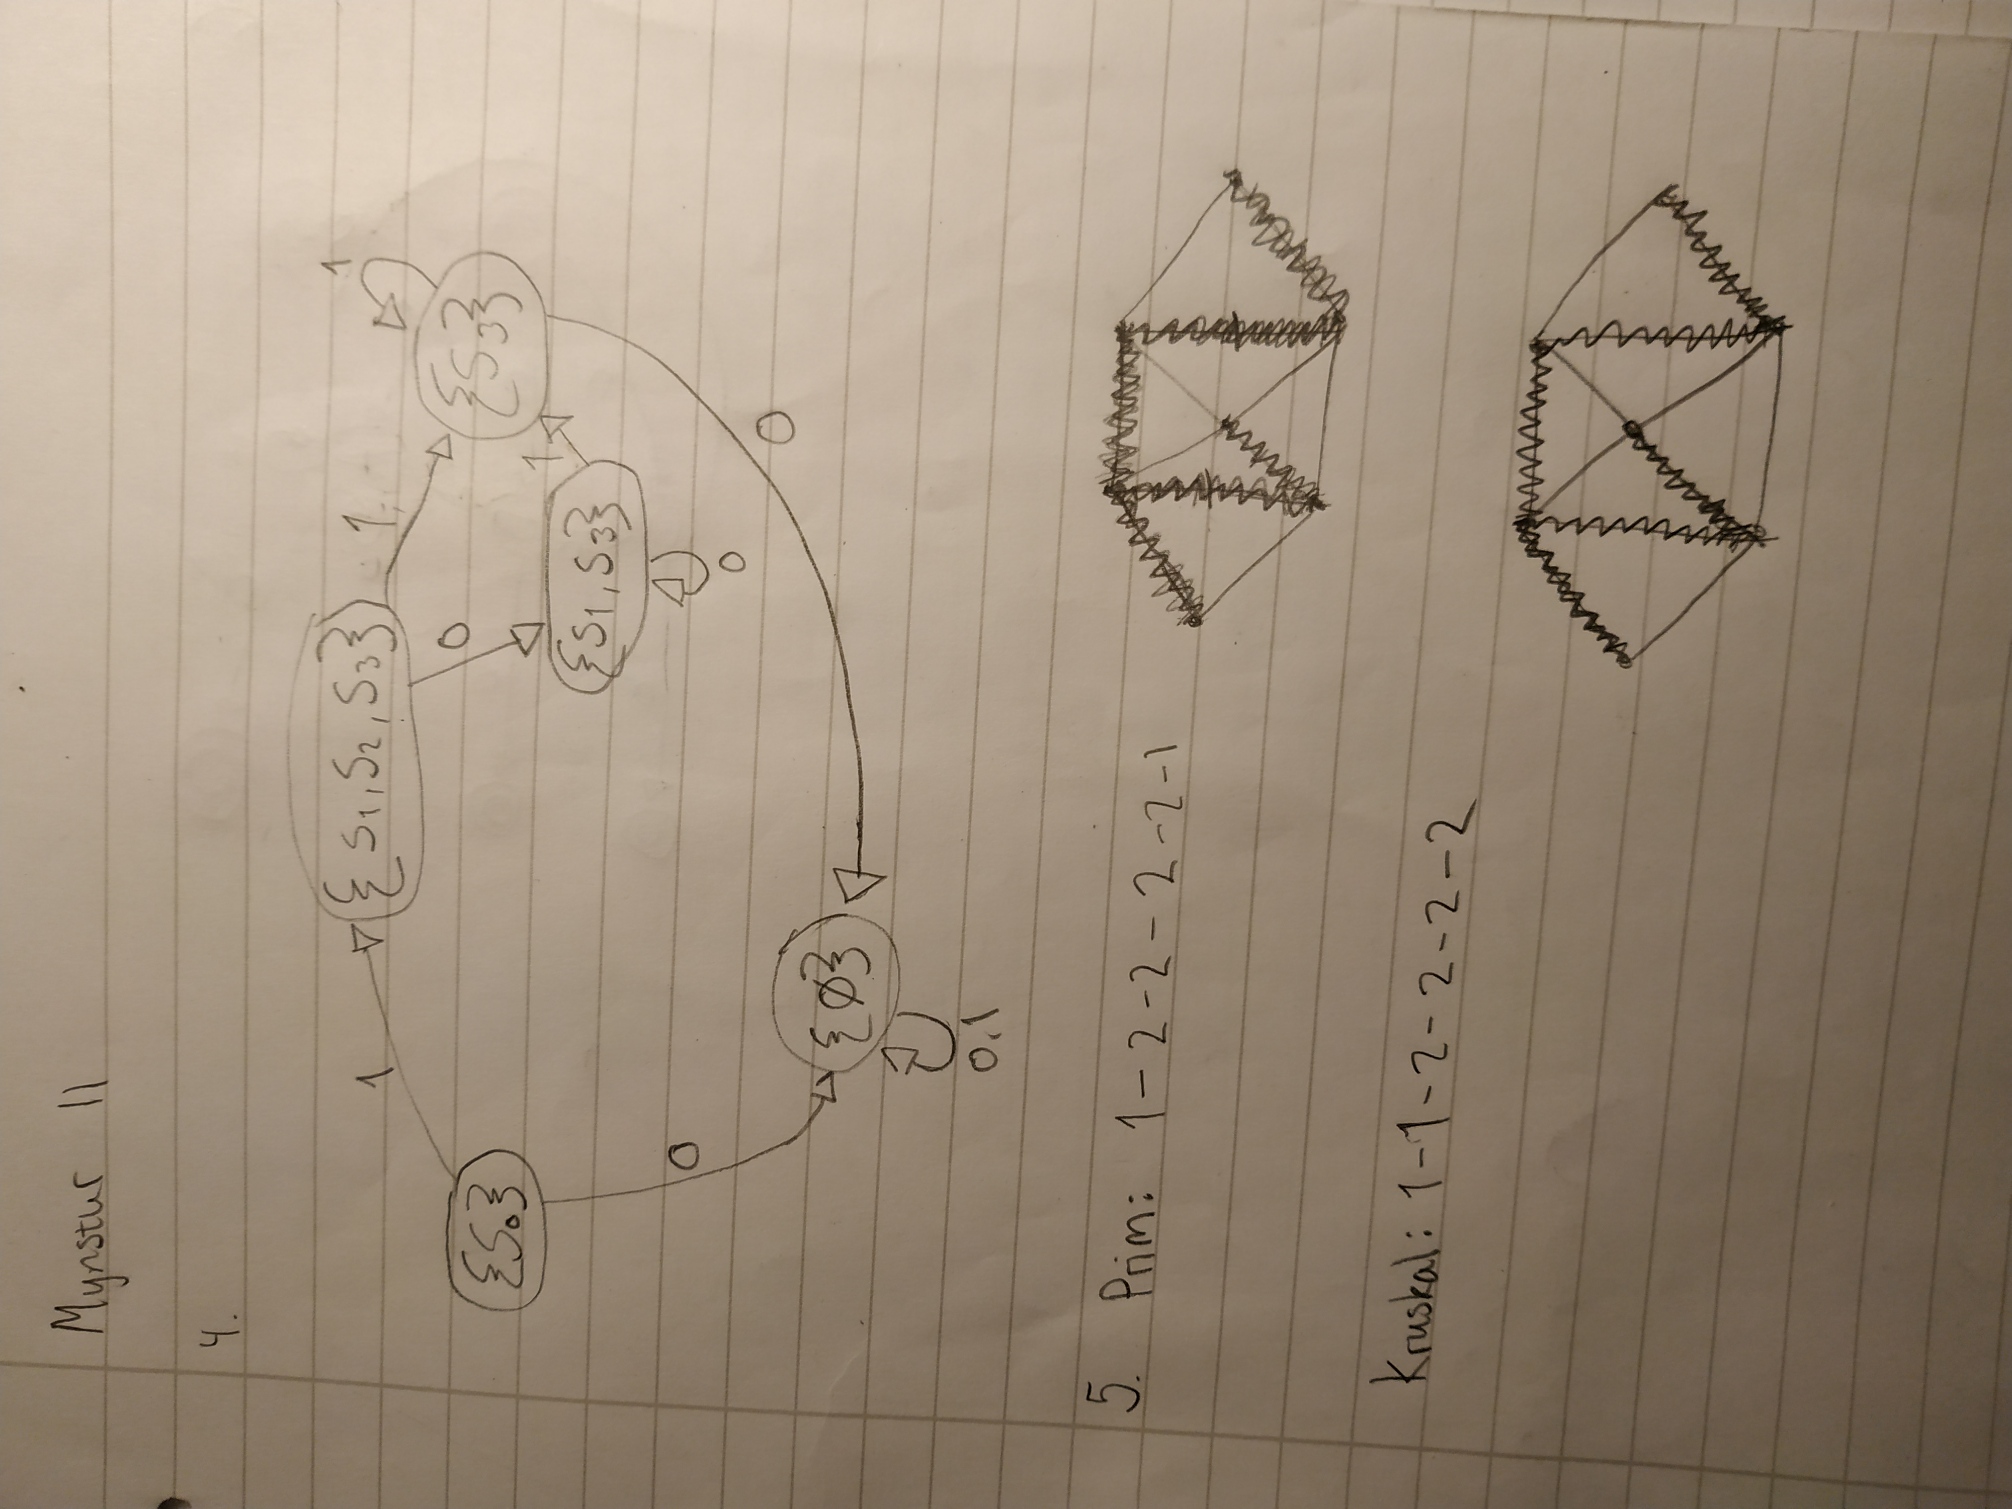 Mynstur 11
4.
1
{S₁,S₂,S₃}
1
1
{S₀}
0
{S₃}
1
{S₁,S₃}
0
0
0
{∅}
0,1
5. Prim: 1-2-2-2-2-1
Kruskal: 1-1-2-2-2-2